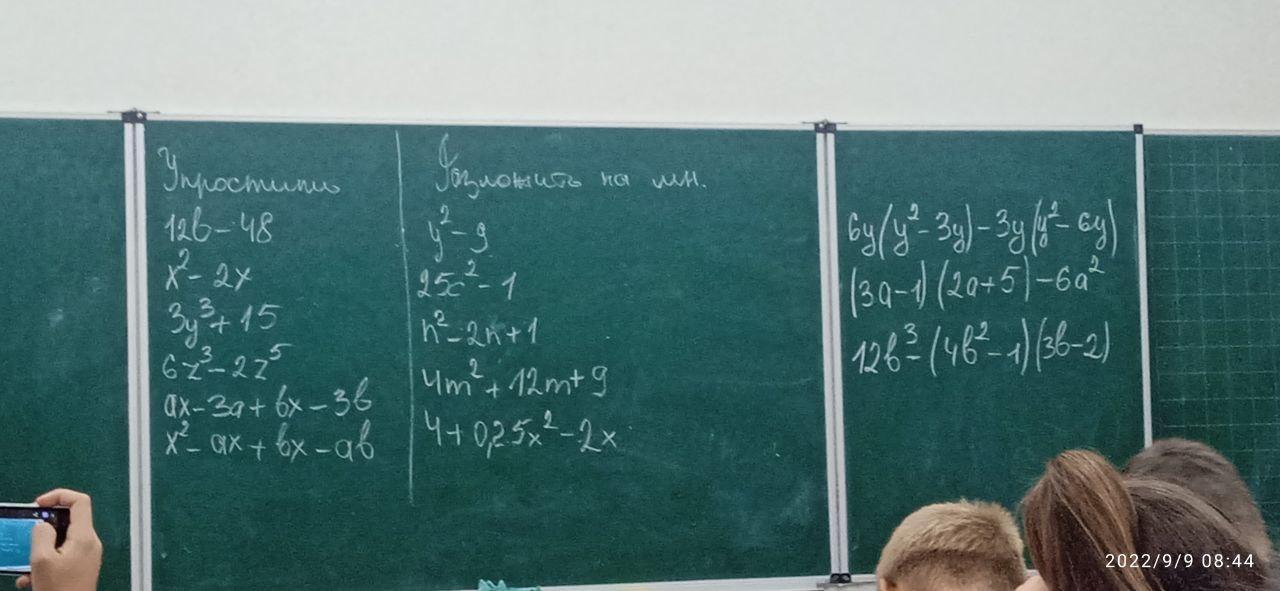 Упростить
12b - 48
x² - 2x
3y³ + 15
6z³ - 2z⁵
ax - 3a + bx - 3b
x² - ax + bx - ab
Разложить на мн.
y² - 9
25c² - 1
n² - 2n + 1
4m² + 12m + 9
4 + 0,25x² - 2x
6y(y² - 3y) - 3y(y² - 6y)
(3a - 1)(2a + 5) - 6a²
12b³ - (4b² - 1)(3b - 2)
2022/9/9 08:44